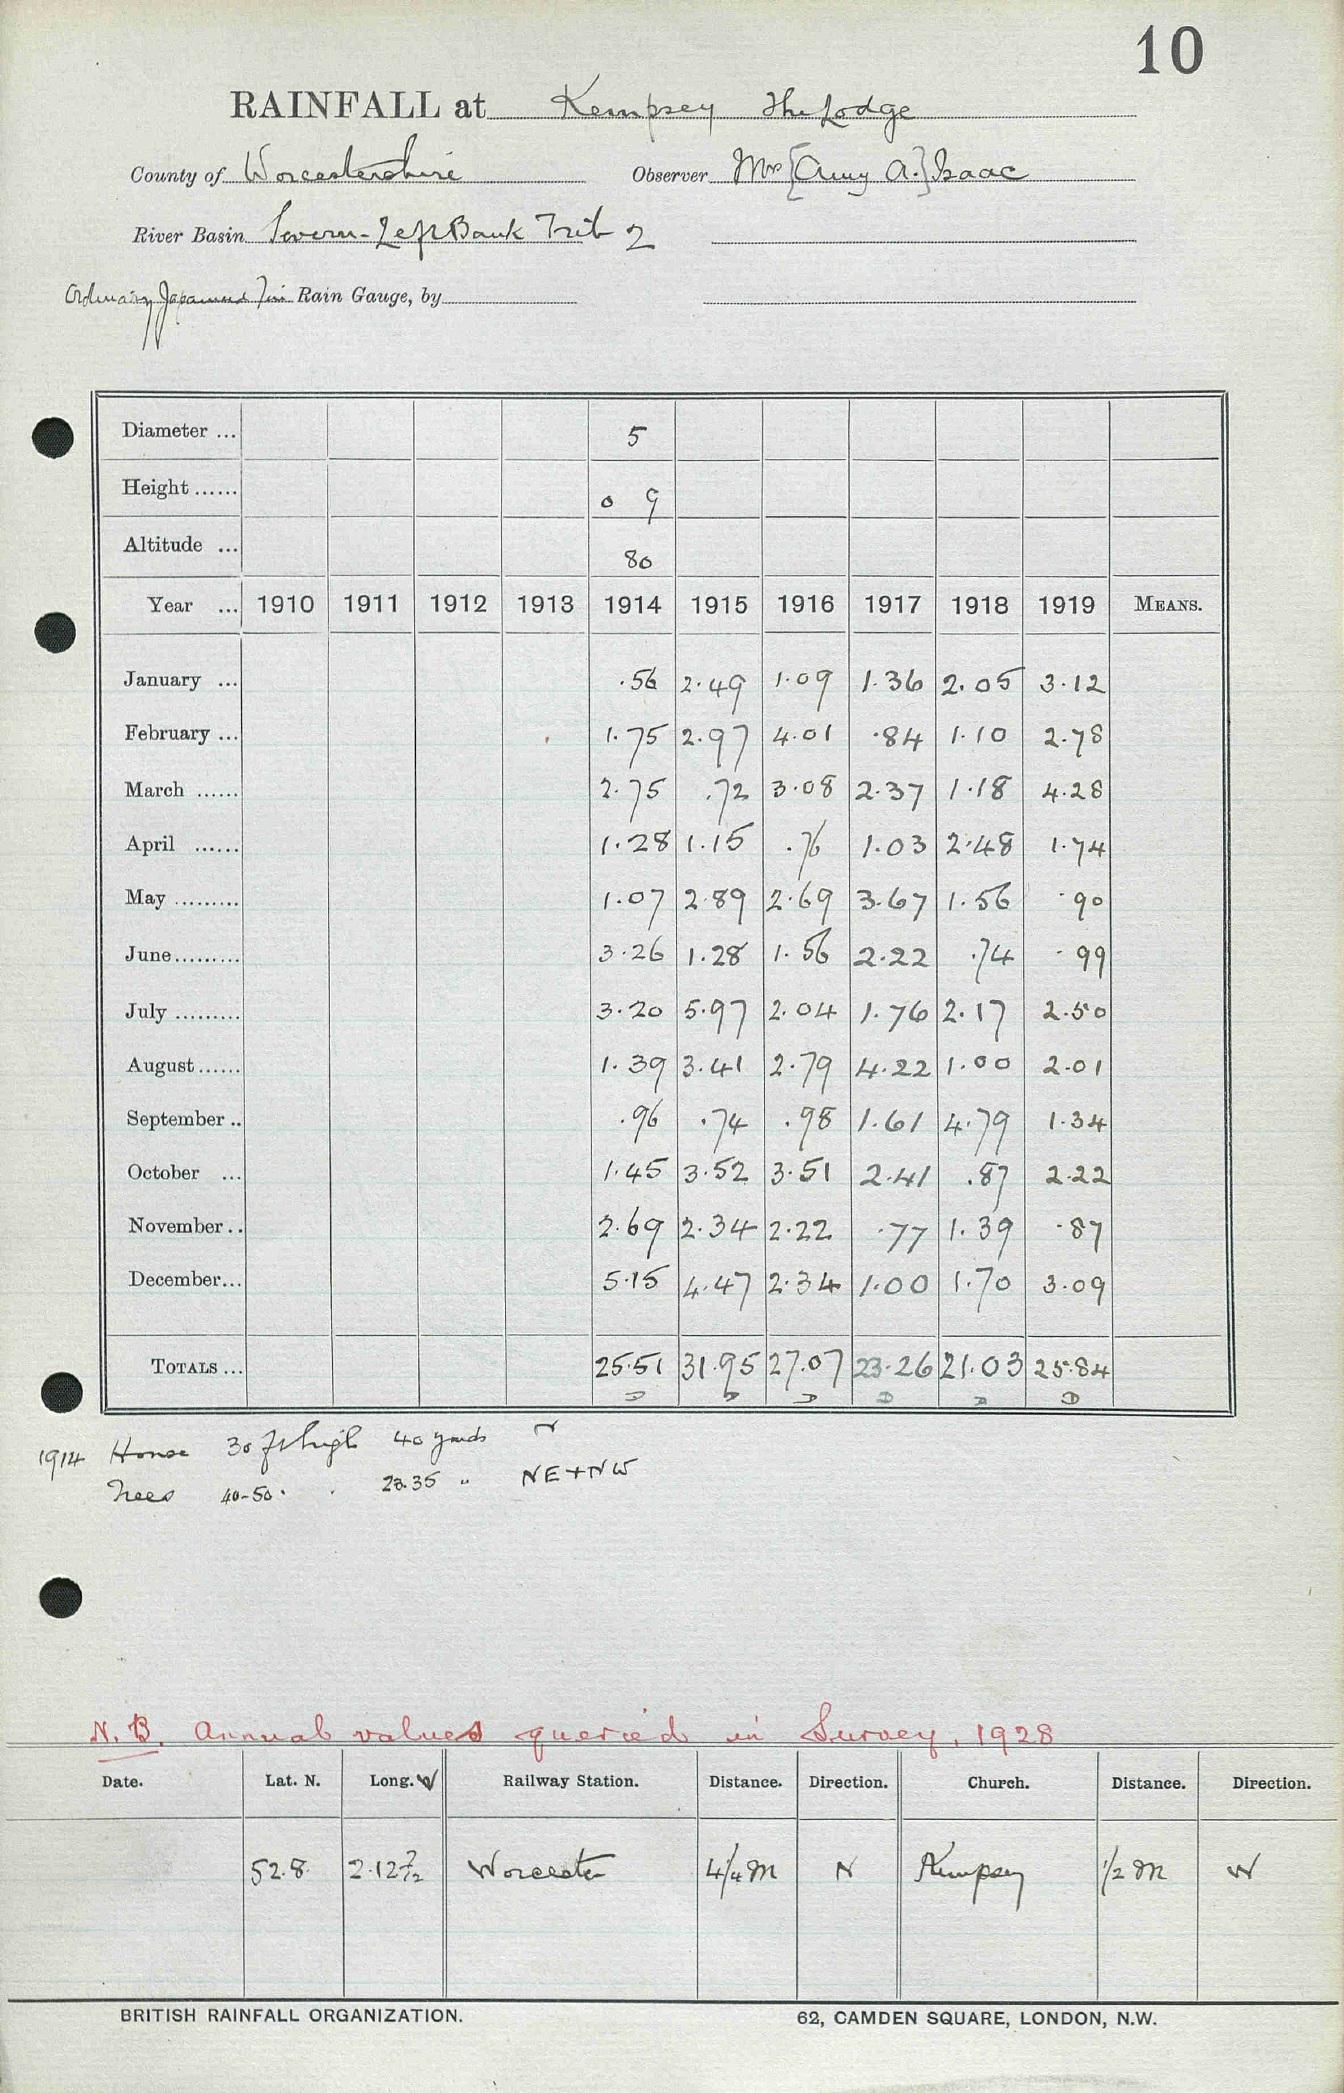 10
RAINFALL at Kempsey The Lodge
County of Worcestershire Observer Mrs [Amy A.] Isaac
River Basin Severn - Left Bank Trib 2
Ordinary Japanned Tin Rain Gauge, by
Diameter ... 5
Height ...... 0 9
Altitude ... 80
Year ... 1910 1911 1912 1913 1914 1915 1916 1917 1918 1919 MEANS.
January ... .56 2.49 1.09 1.36 2.05 3.12
February ... 1.75 2.97 4.01 .84 1.10 2.78
March ...... 2.75 .72 3.08 2.37 1.18 4.28
April ...... 1.28 1.15 .76 1.03 2.48 1.74
May ......... 1.07 2.89 2.69 3.67 1.56 .90
June ......... 3.26 1.28 1.56 2.22 .74 .99
July ......... 3.20 5.97 2.04 1.76 2.17 2.50
August ...... 1.39 3.41 2.79 4.22 1.00 2.01
September .. .96 .74 .98 1.61 4.79 1.34
October ... 1.45 3.52 3.51 2.41 .87 2.22
November .. 2.69 2.34 2.22 .77 1.39 .87
December ... 5.15 4.47 2.34 1.00 1.70 3.09
TOTALS ... 25.51 31.95 27.07 23.26 21.03 25.84
D D D D D D
1914 House 30 ft high 40 yards N
Trees 40-50 " " NE + NW
N.B. Annual values queried in Survey, 1928
Date. Lat. N. Long. W Railway Station. Distance. Direction. Church. Distance. Direction.
52.8 2.12½ Worcester 4¼ m N Kempsey ½ m W
BRITISH RAINFALL ORGANIZATION. 62, CAMDEN SQUARE, LONDON, N.W.